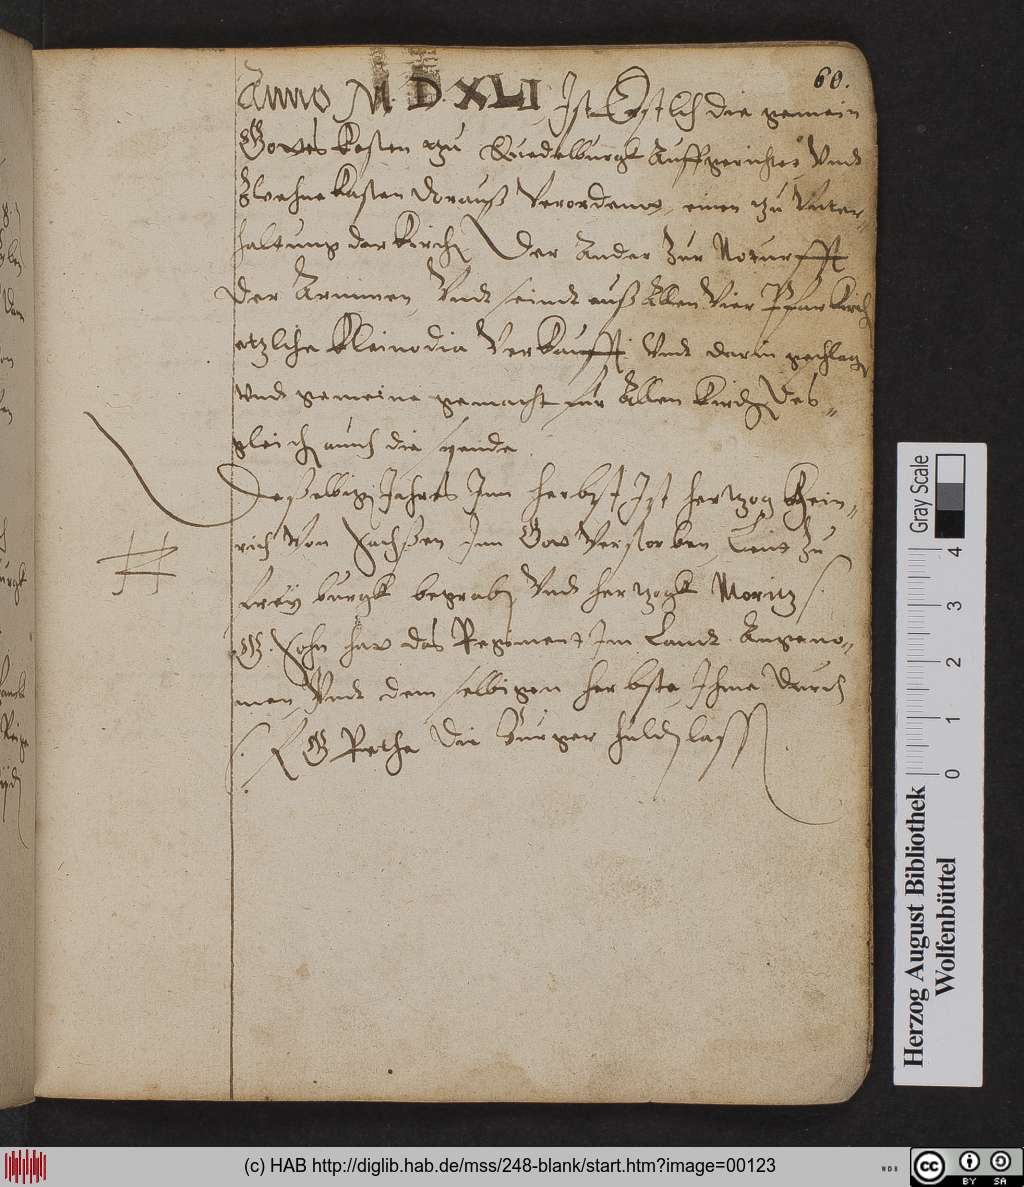 60.
Anno M D XLI Ist Erstlich die gemein
Gottes kasten tzu Quedelburgk Auffgerichtet Vnd
Zwehne kasten dorauß Verordent, einen zu Vnter„
haltung der kirchen Der Ander zur Noturfft
der Armmen, Vndt seindt auß Allen Vier Pfarkirchen
etzliche kleinodia Verkaufft Vndt darin geschlagen
vnd gemeine gemacht für Allen kirchen Des„
gleichen auch die spende.
Deßelbigen Jahres Im herbst Ist hertzog Hein„
rich Von Sachssen Im Gott Verstorben, Leit zu
Freyburgk begraben Vndt hertzogk Moritz S.
G. Sohn hat das Regiment Im Landt Angeno„
men, Vndt dem selbigen herbste, Ihme durch
S. F G Rethe die Bürger hulden lassen
Herzog August Bibliothek
Wolfenbüttel
Gray Scale
0 1 2 3 4
(c) HAB http://diglib.hab.de/mss/248-blank/start.htm?image=00123
WDB
cc BY SA